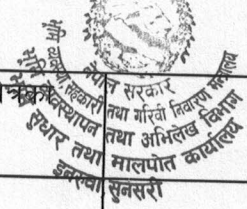 नेपाल सरकार
भूमि व्यवस्था सहकारी तथा गरिवी निवारण मन्त्रालय
भूमि व्यवस्थापन तथा अभिलेख विभाग
सुधार तथा मालपोत कार्यालय
इनरुवा सुनसरी